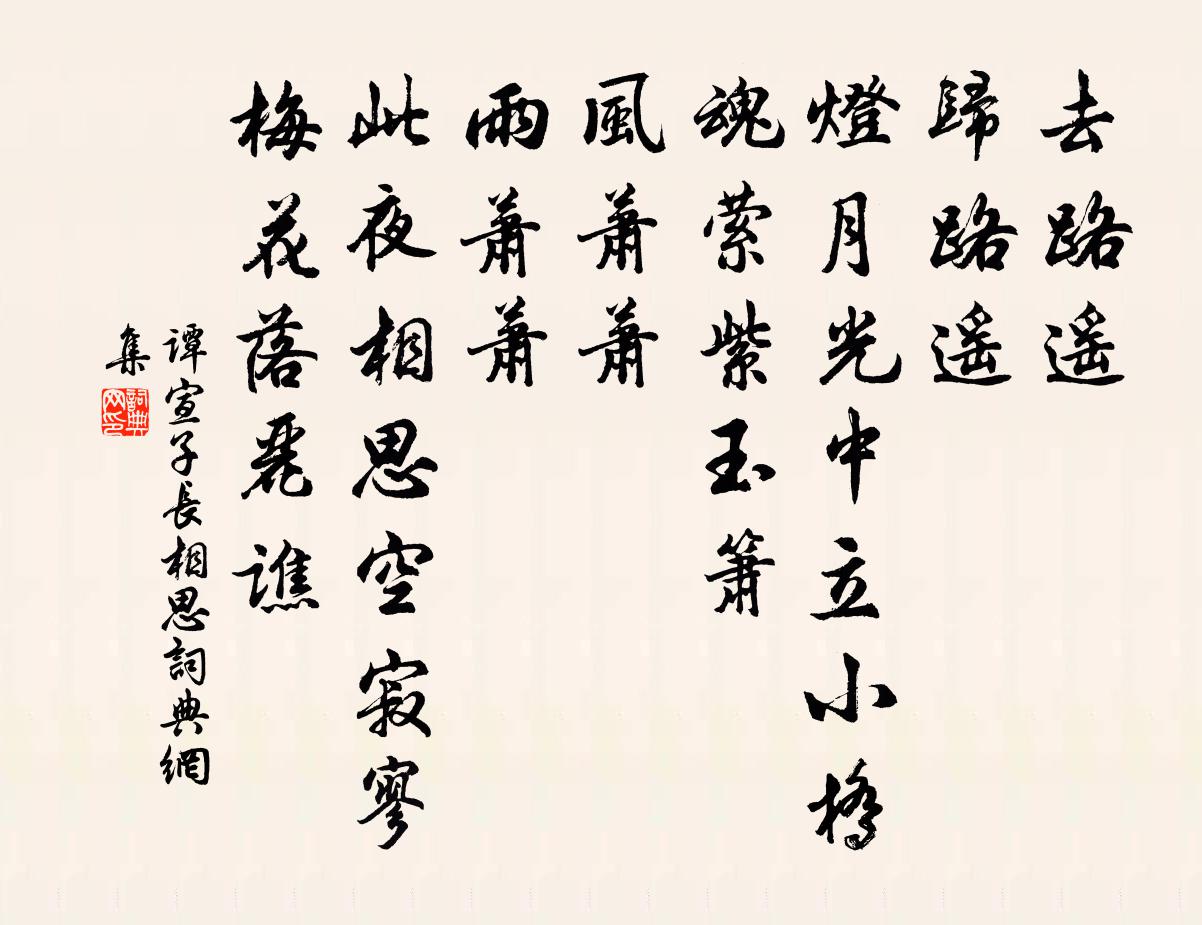 去路遥
歸路遥
燈月光中立小橋
魂萦紫玉簫
風蕭蕭
雨蕭蕭
此夜相思空寂寥
梅花落麗譙
譚宣子長相思詞典網
集
詞典网印